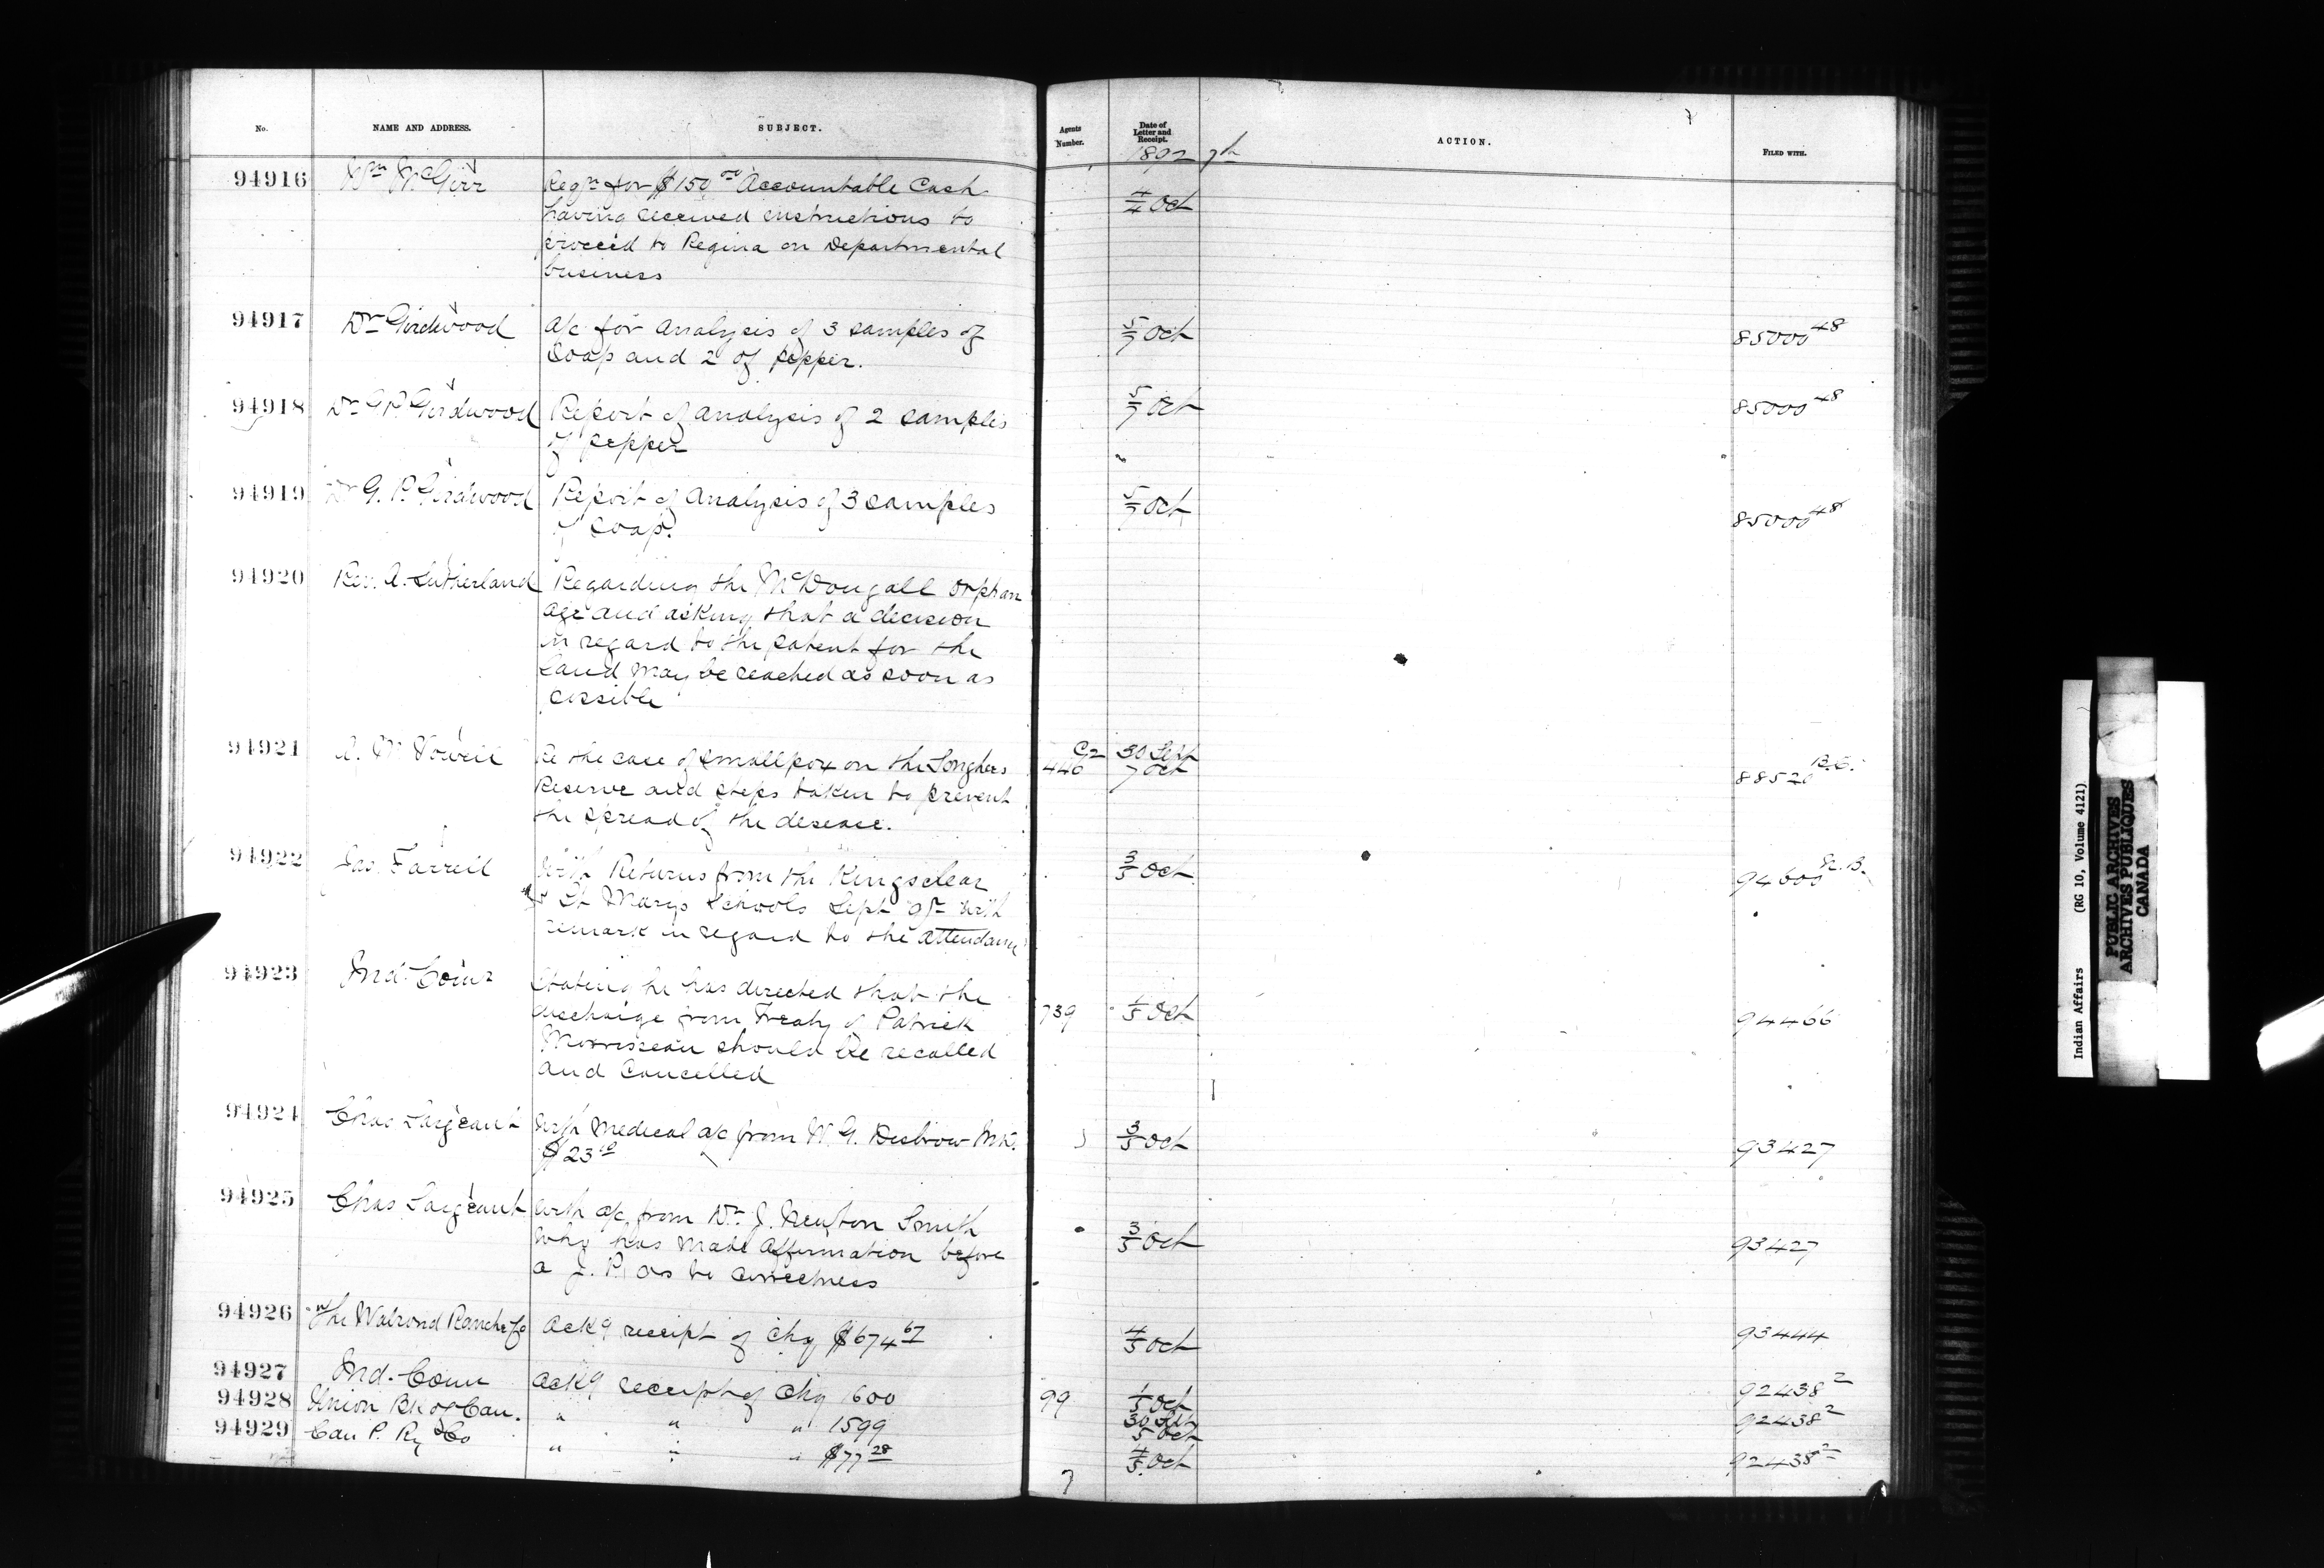 No. NAME AND ADDRESS. SUBJECT. Agents Number. Date of Letter and Receipt. ACTION. FILED WITH.
1892 7th
94916 Wm McGirr Reqn for $150.00 Accountable Cash 4/4 Oct
having received instructions to
proceed to Regina on Departmental
business
94917 Dr Girdwood a/c for analysis of 3 samples of 5/7 Oct 85000 48
Soap and 2 of pepper.
94918 Dr G P. Girdwood Report of analysis of 2 samples 5/7 Oct 85000 48
of pepper
94919 Dr G. P. Girdwood Report of analysis of 3 samples 5/7 Oct 85000 48
of soap.
94920 Rev. A. Sutherland Regarding the McDougall Orphan
age and asking that a decision
in regard to the patent for the
land may be reached as soon as
possible
94921 A. W. Vowell Re the case of smallpox on the Songhees C2 446 30 Sept 7 Oct 88520 B.C.
Reserve and steps taken to prevent
the spread of the desease.
94922 Jas. Farrell With Returns from the Kingsclear 3/5 Oct 94600
& St Marys Schools Sept qr with
remark in regard to the attendance
94923 Ind. Comr Stating he has directed that the 739 1/5 Oct 94466
discharge from Treaty of Patrick
Morrisseau should be recalled
and Cancelled
94924 Chas Sargeant With Medical a/c from W. G. 3/5 Oct 93427
$23 10
94925 Chas Sargeant With a/c from Dr J. Newton Smith 3/5 Oct 93427
who has made affirmation before
a J. P. as to correctness
94926 The Walrond Ranche Co Ackg receipt of chq $674 67 4/5 Oct 93444
94927 Ind. Comr Ackg receipt of chq 1600 99 1/5 Oct 92438 2
94928 Union Bk of Can. " " " 1599 30 Sept 5 Oct 92438 2
94929 Can P. Ry Co " " " $77 28 4/5 Oct 92438 2
Indian Affairs (RG 10, Volume 4121)
PUBLIC ARCHIVES
ARCHIVES PUBLIQUES
CANADA